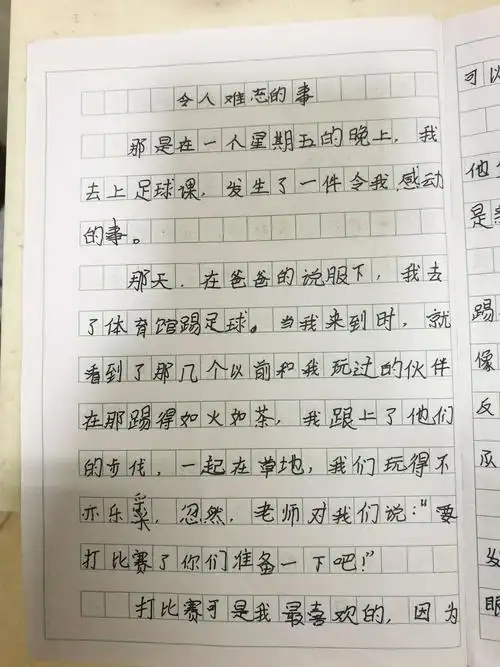 令人难忘的事
那是在一个星期五的晚上，我
去上足球课，发生了一件令我感动
的事。
那天，在爸爸的说服下，我去
了体育馆踢足球。当我来到时，就
看到了那几个以前和我玩过的伙伴
在那踢得如火如茶，我跟上了他们
的步伐，一起在草地，我们玩得不
亦乐，忽然，老师对我们说：“要
打比赛了你们准备一下吧！”
打比赛可是我最喜欢的，因为
可以
他
是
踢
像
反
发
眼